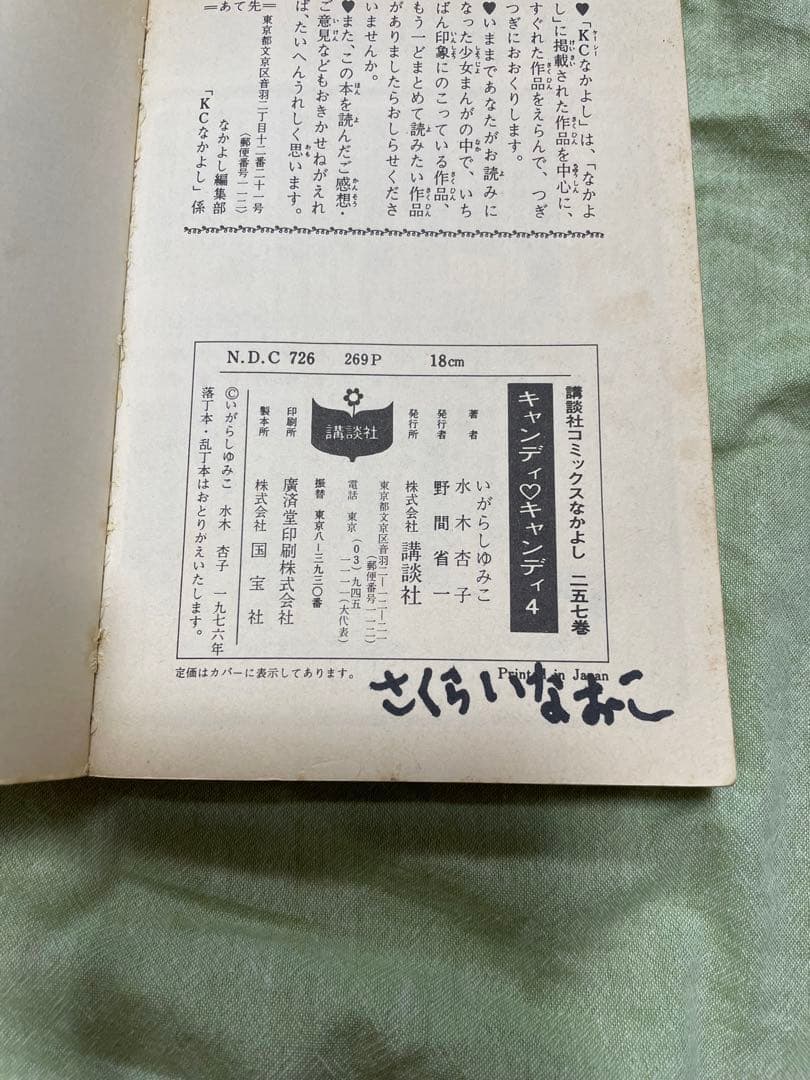 ♥「KCなかよし」は、「なかよ
し」に掲載された作品を中心に、
すぐれた作品をえらんで、つぎ
つぎにおおくりします。
♥いままであなたがお読みに
なった少女まんがの中で、いち
ばん印象にのこっている作品、
もう一どまとめて読みたい作品
がありましたらおしらせくださ
いませんか。
♥また、この本を読んだご感想・
ご意見などもおきかせねがえれ
ば、たいへんうれしく思います。
東京都文京区音羽二丁目十二番二十一号
(郵便番号一一二)
なかよし編集部
「KCなかよし」係
N.D.C 726 269P 18cm
講談社コミックスなかよし 二五七巻
キャンディ♡キャンディ4
著者 いがらしゆみこ
水木杏子
発行者 野間省一
発行所 株式会社 講談社
東京都文京区音羽二-一二-二一
(郵便番号一一二)
電話 東京(03)九四五
一一一一(大代表)
振替 東京八-三九三〇番
講談社
印刷所 廣済堂印刷株式会社
製本所 株式会社 国宝社
©いがらしゆみこ 水木 杏子 一九七六年
落丁本・乱丁本はおとりかえいたします。
定価はカバーに表示してあります。
Printed in Japan
さくらいなおこ